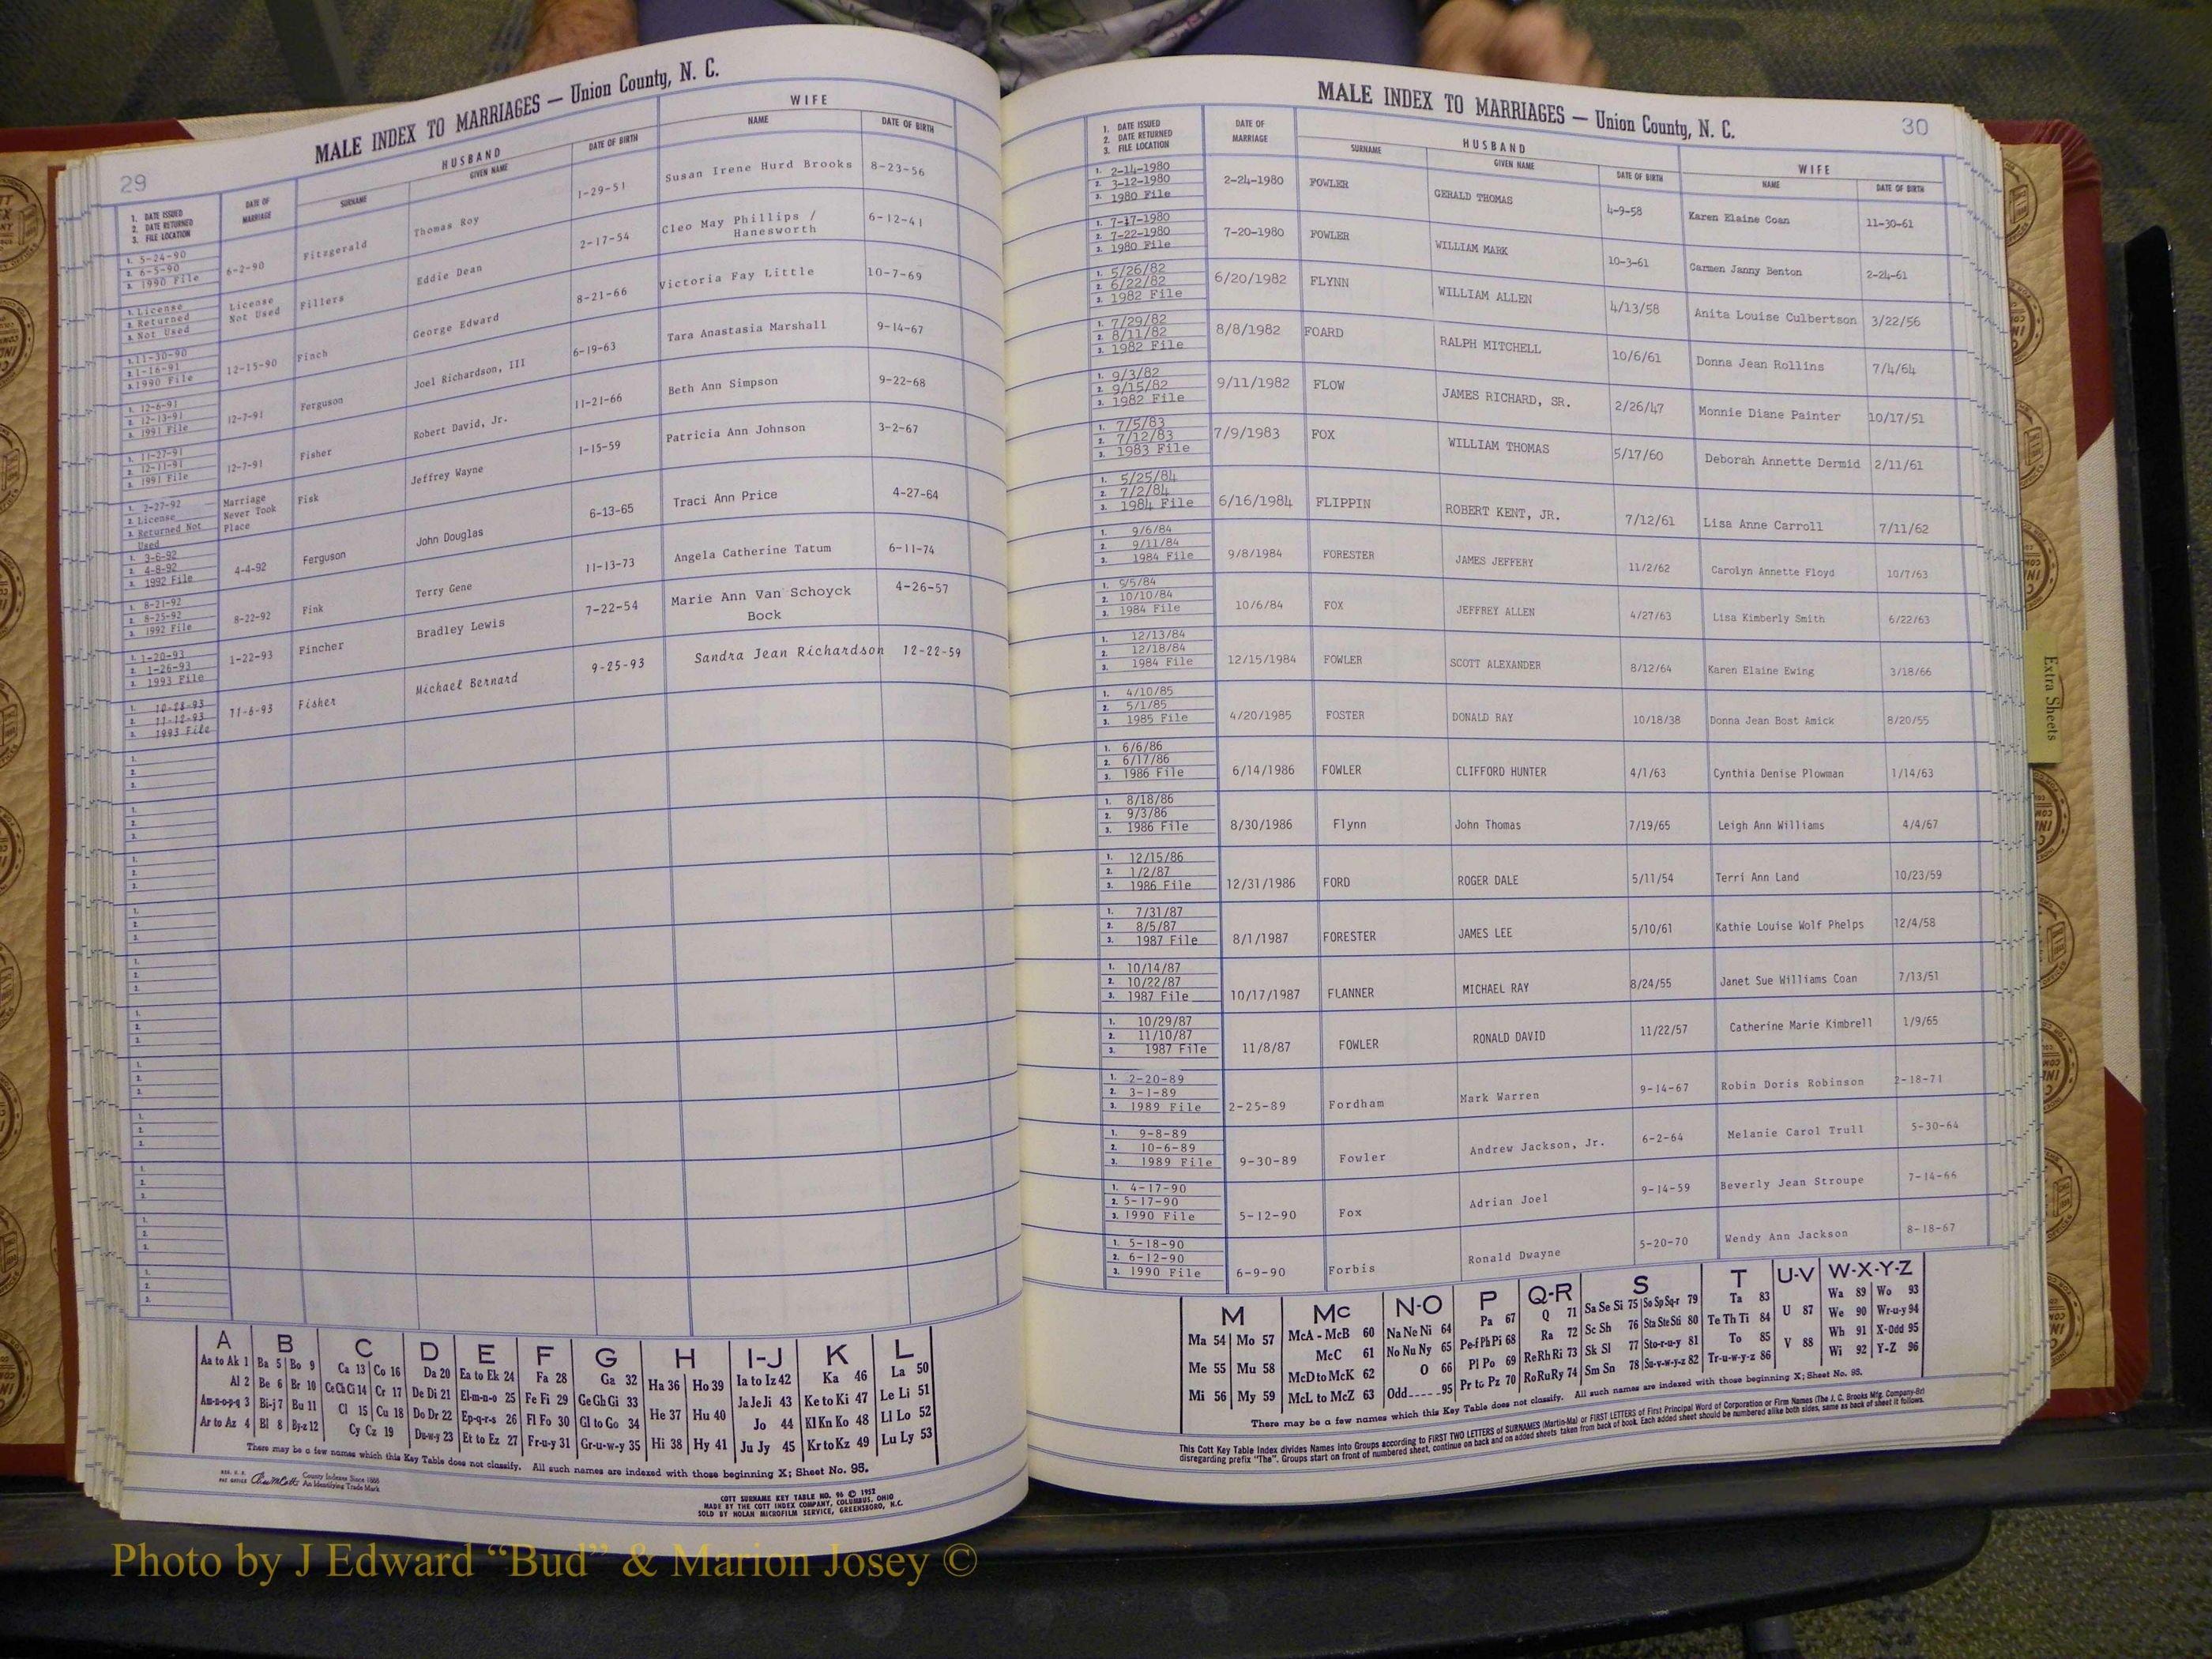 29
MALE INDEX TO MARRIAGES — Union County, N. C.
1. DATE ISSUED
2. DATE RETURNED
3. FILE LOCATION
DATE OF MARRIAGE
HUSBAND
SURNAME GIVEN NAME DATE OF BIRTH
WIFE
NAME DATE OF BIRTH
1. 5-24-90
2. 6-5-90
3. 1990 File
6-2-90 Fitzgerald Thomas Roy 1-29-51 Susan Irene Hurd Brooks 8-23-56
1. License
2. Returned
3. Not Used
License
Not Used
Fillers Eddie Dean 2-17-54 Cleo May Phillips / 6-12-41
Hanesworth
1. 11-30-90
2. 1-16-91
3. 1990 File
12-15-90 Finch George Edward 8-21-66 Victoria Fay Little 10-7-69
1. 12-6-91
2. 12-13-91
3. 1991 File
12-7-91 Ferguson Joel Richardson, III 6-19-63 Tara Anastasia Marshall 9-14-67
1. 11-27-91
2. 12-11-91
3. 1991 File
12-7-91 Fisher Robert David, Jr. 11-21-66 Beth Ann Simpson 9-22-68
1. 2-27-92
2. License
3. Returned Not
Used
Marriage
Never Took
Place
Fisk Jeffrey Wayne 1-15-59 Patricia Ann Johnson 3-2-67
1. 3-6-92
2. 4-8-92
3. 1992 File
4-4-92 Ferguson John Douglas 6-13-65 Traci Ann Price 4-27-64
1. 8-21-92
2. 8-25-92
3. 1992 File
8-22-92 Fink Terry Gene 11-13-73 Angela Catherine Tatum 6-11-74
1. 1-20-93
2. 1-26-93
3. 1993 File
1-22-93 Fincher Bradley Lewis 7-22-54 Marie Ann Van Schoyck 4-26-57
Bock
1. 10-28-93
2. 11-12-93
3. 1993 File
11-6-93 Fisher Michael Bernard 9-25-93 Sandra Jean Richardson 12-22-59
A B C D E F G H I-J K L
Aa to Ak 1 Ba 5 Bo 9 Ca 13 Co 16 Da 20 Ea to Ek 24 Fa 28 Ga 32 Ha 36 Ho 39 Ia to Iz 42 Ka 46 La 50
Al 2 Be 6 Br 10 Ce Ch Ci 14 Cr 17 De Di 21 El-m-n-o 25 Fe Fi 29 Ge Gh Gi 33 He 37 Hu 40 Ja Je Ji 43 Ke to Ki 47 Le Li 51
Am-n-o-p-q 3 Bi-j 7 Bu 11 Cl 15 Cu 18 Do Dr 22 Ep-q-r-s 26 Fl Fo 30 Gl to Go 34 Hi 38 Hy 41 Jo 44 Kl Kn Ko 48 Ll Lo 52
Ar to Az 4 Bl 8 Bj-z 12 Cy Cz 19 Du-w-y 23 Et to Ez 27 Fr-u-y 31 Gr-u-w-y 35 Ju Jy 45 Kr to Kz 49 Lu Ly 53
There may be a few names which this Key Table does not classify. All such names are indexed with those beginning X; Sheet No. 95.
REG. U. S.
PAT. OFFICE
County Indexes Since 1888
An Identifying Trade Mark
COTT SURNAME KEY TABLE NO. 96 © 1952
MADE BY THE COTT INDEX COMPANY, COLUMBUS, OHIO
SOLD BY NOLAN MICROFILM SERVICE, GREENSBORO, N.C.
MALE INDEX TO MARRIAGES — Union County, N. C.
30
1. DATE ISSUED
2. DATE RETURNED
3. FILE LOCATION
DATE OF MARRIAGE
HUSBAND
SURNAME GIVEN NAME DATE OF BIRTH
WIFE
NAME DATE OF BIRTH
1. 2-14-1980
2. 3-12-1980
3. 1980 File
2-24-1980 FOWLER GERALD THOMAS 4-9-58 Karen Elaine Coan 11-30-61
1. 7-17-1980
2. 7-22-1980
3. 1980 File
7-20-1980 FOWLER WILLIAM MARK 10-3-61 Carmen Janny Benton 2-24-61
1. 5/26/82
2. 6/22/82
3. 1982 File
6/20/1982 FLYNN WILLIAM ALLEN 4/13/58 Anita Louise Culbertson 3/22/56
1. 7/29/82
2. 8/11/82
3. 1982 File
8/8/1982 FOARD RALPH MITCHELL 10/6/61 Donna Jean Rollins 7/4/64
1. 9/3/82
2. 9/15/82
3. 1982 File
9/11/1982 FLOW JAMES RICHARD, SR. 2/26/47 Monnie Diane Painter 10/17/51
1. 7/5/83
2. 7/12/83
3. 1983 File
7/9/1983 FOX WILLIAM THOMAS 5/17/60 Deborah Annette Dermid 2/11/61
1. 5/25/84
2. 7/2/84
3. 1984 File
6/16/1984 FLIPPIN ROBERT KENT, JR. 7/12/61 Lisa Anne Carroll 7/11/62
1. 9/6/84
2. 9/11/84
3. 1984 File
9/8/1984 FORESTER JAMES JEFFERY 11/2/62 Carolyn Annette Floyd 10/7/63
1. 9/5/84
2. 10/10/84
3. 1984 File
10/6/84 FOX JEFFREY ALLEN 4/27/63 Lisa Kimberly Smith 6/22/63
1. 12/13/84
2. 12/18/84
3. 1984 File
12/15/1984 FOWLER SCOTT ALEXANDER 8/12/64 Karen Elaine Ewing 3/18/66
1. 4/10/85
2. 5/1/85
3. 1985 File
4/20/1985 FOSTER DONALD RAY 10/18/38 Donna Jean Bost Amick 8/20/55
1. 6/6/86
2. 6/17/86
3. 1986 File
6/14/1986 FOWLER CLIFFORD HUNTER 4/1/63 Cynthia Denise Plowman 1/14/63
1. 8/18/86
2. 9/3/86
3. 1986 File
8/30/1986 Flynn John Thomas 7/19/65 Leigh Ann Williams 4/4/67
1. 12/15/86
2. 1/2/87
3. 1986 File
12/31/1986 FORD ROGER DALE 5/11/54 Terri Ann Land 10/23/59
1. 7/31/87
2. 8/5/87
3. 1987 File
8/1/1987 FORESTER JAMES LEE 5/10/61 Kathie Louise Wolf Phelps 12/4/58
1. 10/14/87
2. 10/22/87
3. 1987 File
10/17/1987 FLANNER MICHAEL RAY 8/24/55 Janet Sue Williams Coan 7/13/51
1. 10/29/87
2. 11/10/87
3. 1987 File
11/8/87 FOWLER RONALD DAVID 11/22/57 Catherine Marie Kimbrell 1/9/65
1. 2-20-89
2. 3-1-89
3. 1989 File
2-25-89 Fordham Mark Warren 9-14-67 Robin Doris Robinson 2-18-71
1. 9-8-89
2. 10-6-89
3. 1989 File
9-30-89 Fowler Andrew Jackson, Jr. 6-2-64 Melanie Carol Trull 5-30-64
1. 4-17-90
2. 5-17-90
3. 1990 File
5-12-90 Fox Adrian Joel 9-14-59 Beverly Jean Stroupe 7-14-66
1. 5-18-90
2. 6-12-90
3. 1990 File
6-9-90 Forbis Ronald Dwayne 5-20-70 Wendy Ann Jackson 8-18-67
M Mc N-O P Q-R S T U-V W-X-Y-Z
Ma 54 Mo 57 McA - McB 60 Na Ne Ni 64 Pa 67 Q 71 Sa Se Si 75 So Sp Sq-r 79 Ta 83 U 87 Wa 89 Wo 93
Me 55 Mu 58 McC 61 No Nu Ny 65 Pe-f Ph Pi 68 Ra 72 Sc Sh 76 Sta Ste Sti 80 Te Th Ti 84 V 88 We 90 Wr-u-y 94
Mi 56 My 59 McD to McK 62 O 66 Pl Po 69 Re Rh Ri 73 Sk Sl 77 Sto-r-u-y 81 To 85 Wh 91 X-Odd 95
McL to McZ 63 Odd 95 Pr to Pz 70 Ro Ru Ry 74 Sm Sn 78 Su-v-w-y-z 82 Tr-u-w-y-z 86 Wi 92 Y-Z 96
There may be a few names which this Key Table does not classify. All such names are indexed with those beginning X; Sheet No. 95.
This Cott Key Table Index divides Names into Groups according to FIRST TWO LETTERS of SURNAMES (Martin-Ma) or FIRST LETTERS of First Principal Word of Corporation or Firm Names (The J. C. Brooks Mfg. Company-Br)
disregarding prefix "The". Groups start on front of numbered sheet, continue on back and on added sheets taken from back of book. Each added sheet should be numbered alike both sides, same as back of sheet it follows.
Extra Sheets
Photo by J Edward “Bud” & Marion Josey ©